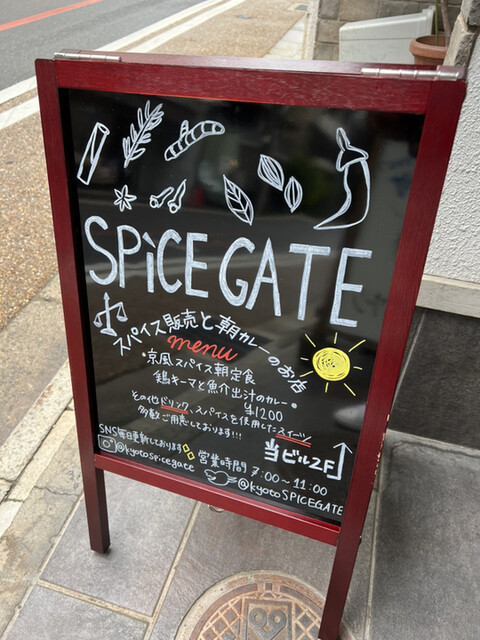 SPiCE GATE
スパイス販売と朝カレーのお店
menu
・京風スパイス朝定食
鶏キーマと魚介出汁のカレー。
¥1200
その他ドリンク、スパイスを使用したスイーツ
多数ご用意しております!!!
当ビル2F
SNS毎日更新しております
営業時間 7:00~11:00
@kyotospicegate
@kyotoSPICEGATE